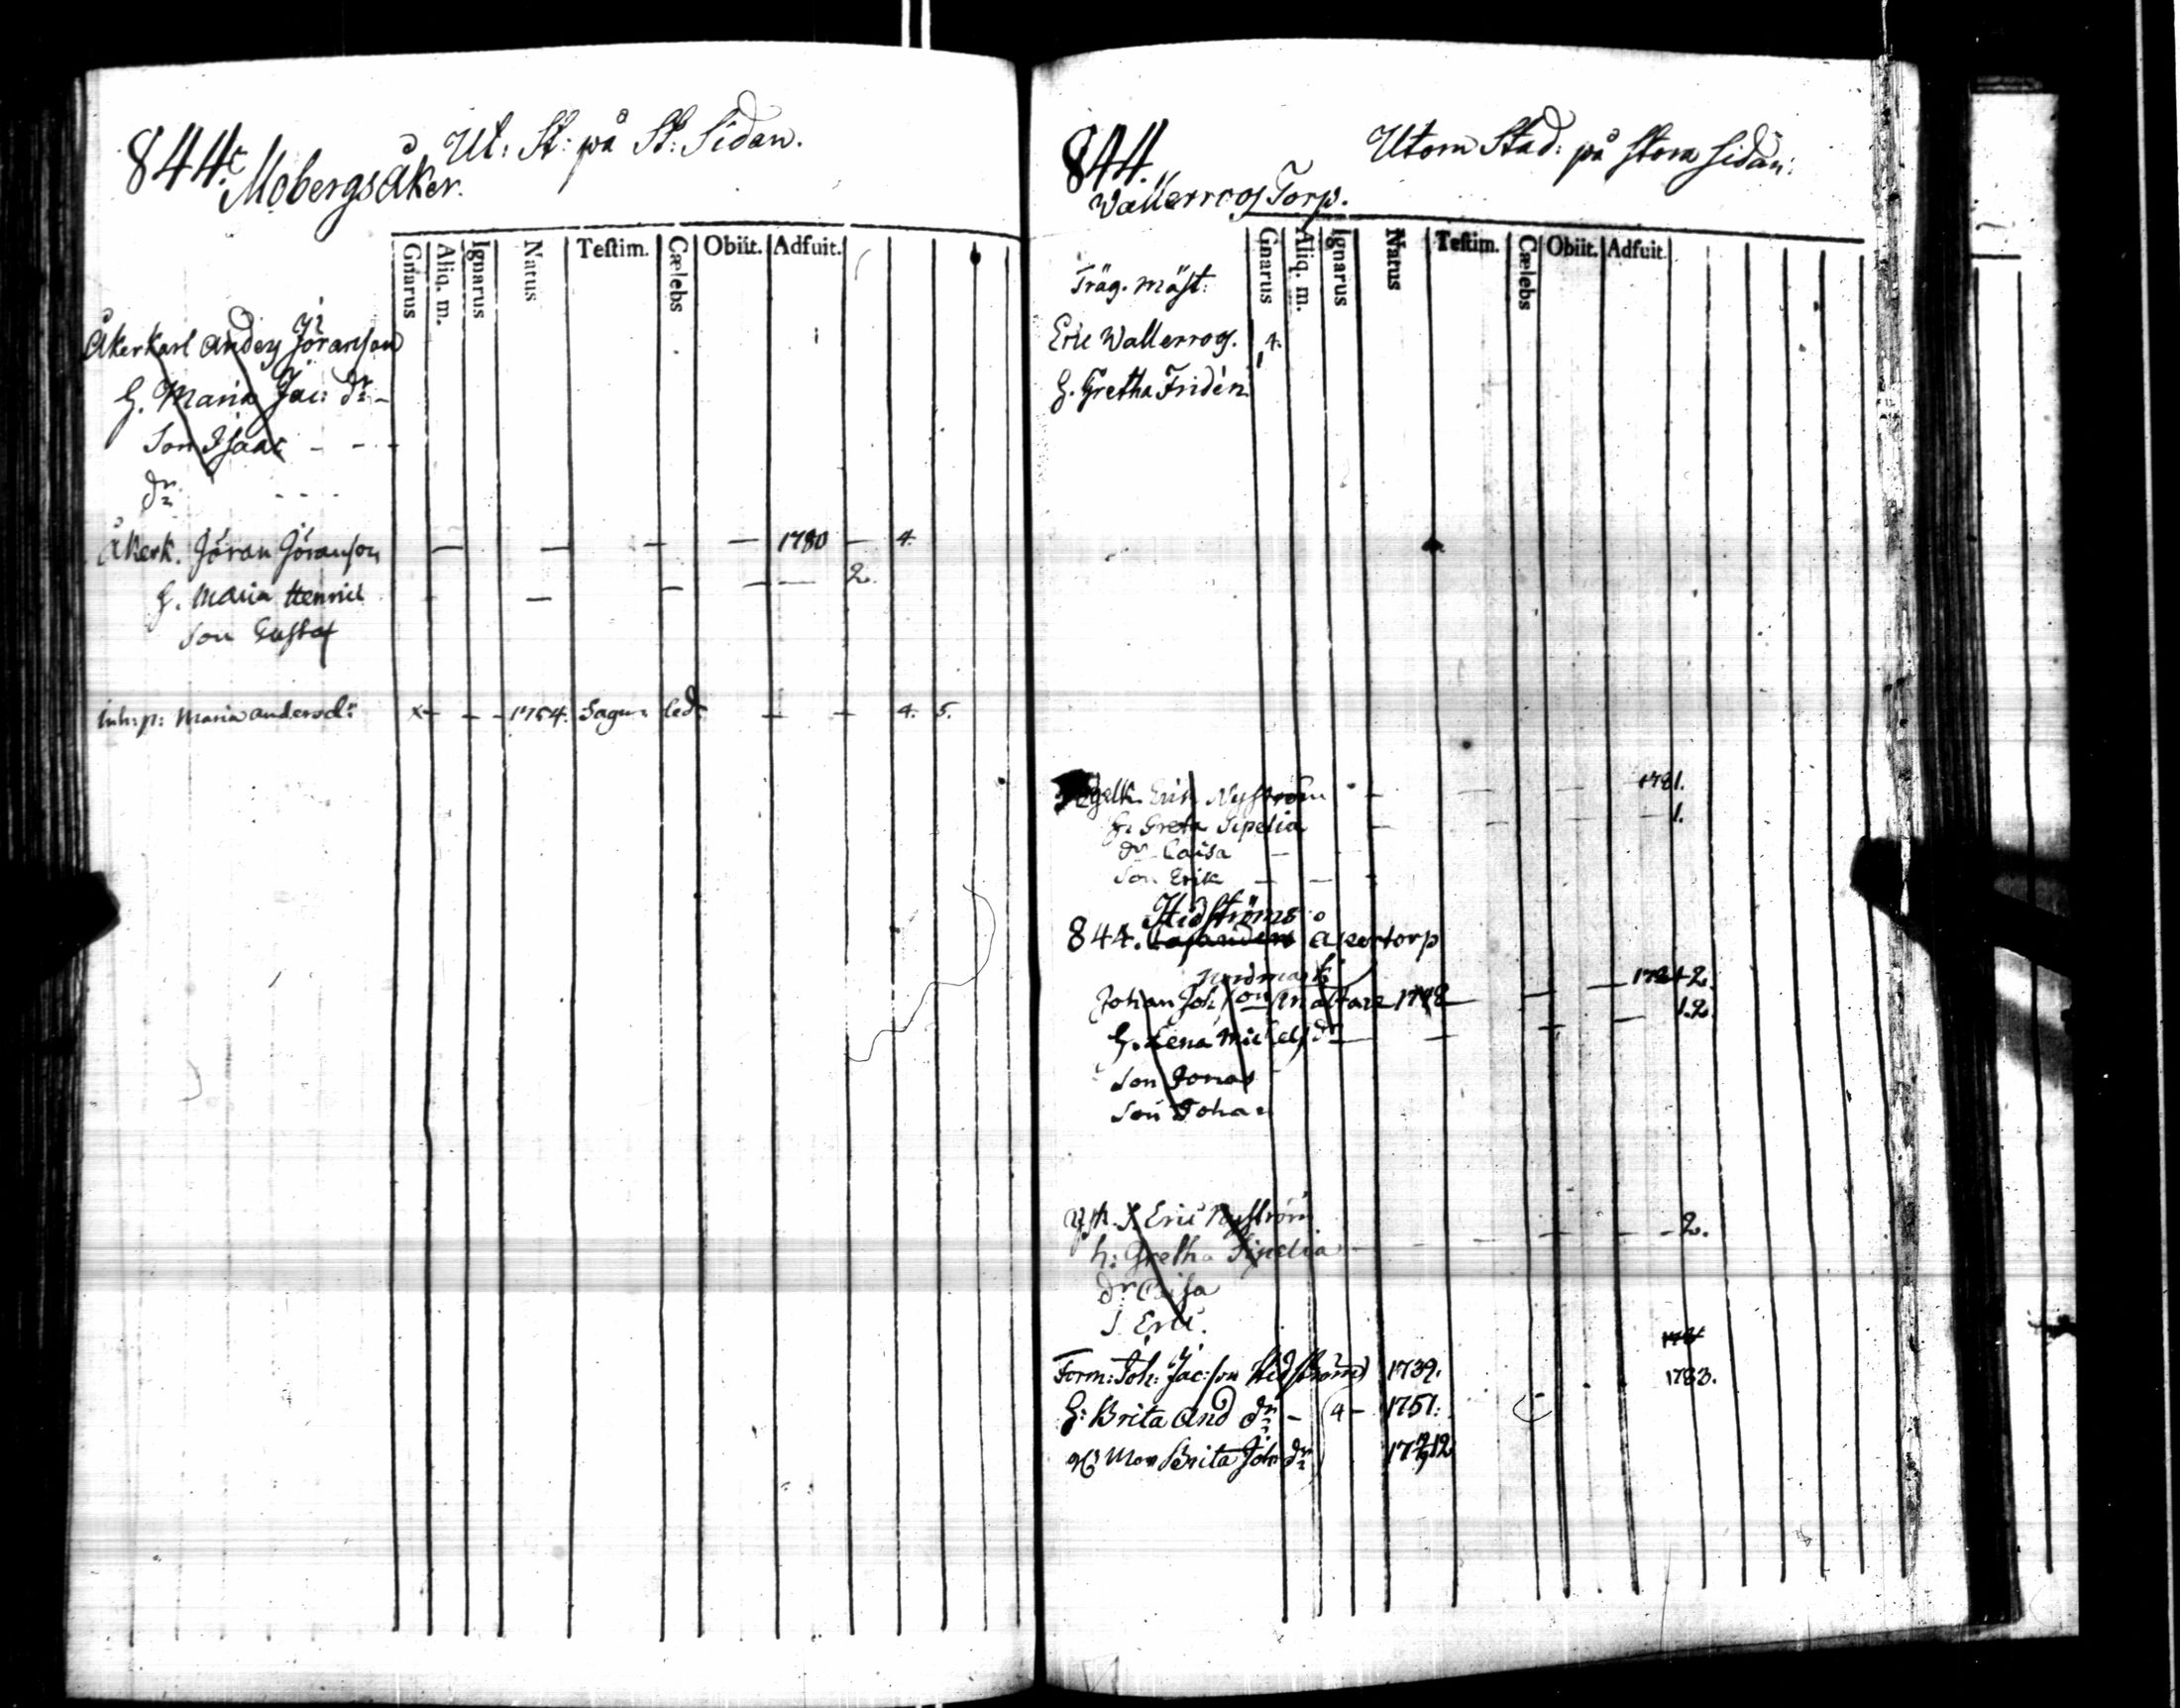 844.c Ut: St: på St: Sidan.
Mobergsåker.
Gnarus Aliq. m. Ignarus Natus Teſtim. Cælebs Obiit. Adfuit.
Åkerkarl Anders Jöranson
H. Maria Jac: dr -
Son Isaac - - -
dr - - - -
Åkerk. Jöran Jöranson — — — — 1780 — 4.
H. Maria Henric — — — — 2.
Son Gustaf
Inh:p: Maria Andersd:r x - - - 1754. Sagu: led. - - 4. 5.
844. Utom Stad: på Stora Sidan:
Wallerroos Torp.
Gnarus Aliq. m. Ignarus Natus Teſtim. Cælebs Obiit. Adfuit.
Träg. mäst:
Eric Wallerroos. 4.
H. Gretha Fridén
Erik Nyström — — — 1781.
H. Greta Sipelia — — — — 1.
dr Caisa —
Son Erik — —
Hidströms
844. åkertorp
Johan Joh:son Mältare — —
H. Lena Michelsdr — — — — 1.2.
Son Jonas
Son Johan
Eric Nyström
h: Gretha Sipelia — — — — — 2.
dr Caisa
S. Eric.
Form: Joh: Jac:son Hidström 1739. 1783.
H: Brita And dr - 4 - 1751.
Mor Brita Joh dr